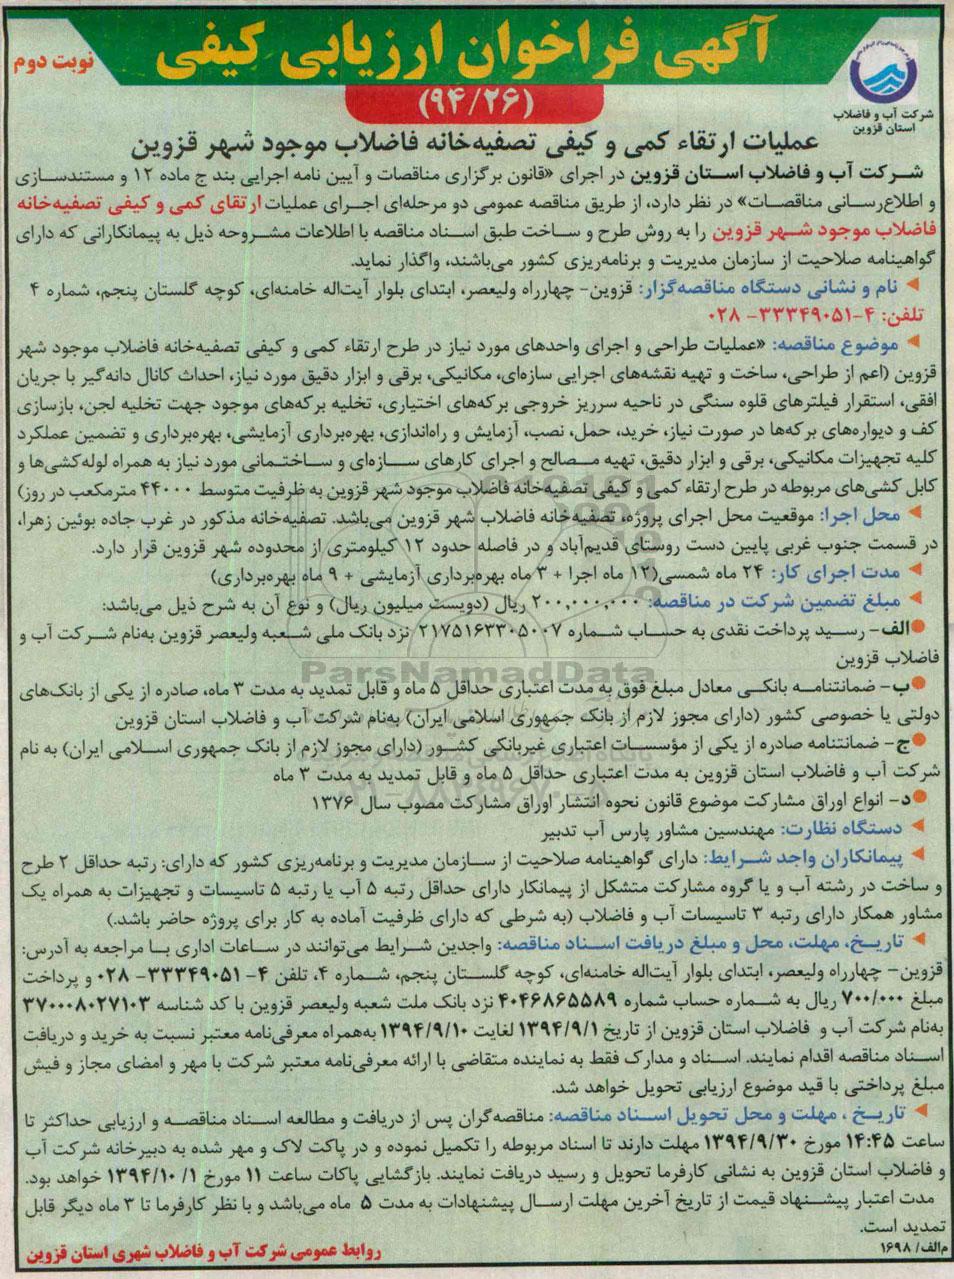 آگهی فراخوان ارزیابی کیفی
نوبت دوم
(۹۴/۲۶)
شرکت آب و فاضلاب
استان قزوین
عملیات ارتقاء کمی و کیفی تصفیه‌خانه فاضلاب موجود شهر قزوین
شرکت آب و فاضلاب استان قزوین در اجرای «قانون برگزاری مناقصات و آیین نامه اجرایی بند ج ماده ۱۲ و مستندسازی
و اطلاع‌رسانی مناقصات» در نظر دارد، از طریق مناقصه عمومی دو مرحله‌ای اجرای عملیات ارتقای کمی و کیفی تصفیه‌خانه
فاضلاب موجود شهر قزوین را به روش طرح و ساخت طبق اسناد مناقصه با اطلاعات مشروحه ذیل به پیمانکارانی که دارای
گواهینامه صلاحیت از سازمان مدیریت و برنامه‌ریزی کشور می‌باشند، واگذار نماید.
نام و نشانی دستگاه مناقصه‌گزار: قزوین- چهارراه ولیعصر، ابتدای بلوار آیت‌اله خامنه‌ای، کوچه گلستان پنجم، شماره ۴
تلفن: ۴-۳۳۳۴۹۰۵۱- ۰۲۸
موضوع مناقصه: «عملیات طراحی و اجرای واحدهای مورد نیاز در طرح ارتقاء کمی و کیفی تصفیه‌خانه فاضلاب موجود شهر
قزوین (اعم از طراحی، ساخت و تهیه نقشه‌های اجرایی سازه‌ای، مکانیکی، برقی و ابزار دقیق مورد نیاز، احداث کانال دانه‌گیر با جریان
افقی، استقرار فیلترهای قلوه سنگی در ناحیه سرریز خروجی برکه‌های اختیاری، تخلیه برکه‌های موجود جهت تخلیه لجن، بازسازی
کف و دیواره‌های برکه‌ها در صورت نیاز، خرید، حمل، نصب، آزمایش و راه‌اندازی، بهره‌برداری آزمایشی، بهره‌برداری و تضمین عملکرد
کلیه تجهیزات مکانیکی، برقی و ابزار دقیق، تهیه مصالح و اجرای کارهای سازه‌ای و ساختمانی مورد نیاز به همراه لوله‌کشی‌ها و
کابل کشی‌های مربوطه در طرح ارتقاء کمی و کیفی تصفیه‌خانه فاضلاب موجود شهر قزوین به ظرفیت متوسط ۴۴۰۰۰ مترمکعب در روز)
محل اجرا: موقعیت محل اجرای پروژه، تصفیه‌خانه فاضلاب شهر قزوین می‌باشد. تصفیه‌خانه مذکور در غرب جاده بوئین زهرا،
در قسمت جنوب غربی پایین دست روستای قدیم‌آباد و در فاصله حدود ۱۲ کیلومتری از محدوده شهر قزوین قرار دارد.
مدت اجرای کار: ۲۴ ماه شمسی(۱۲ ماه اجرا + ۳ ماه بهره‌برداری آزمایشی + ۹ ماه بهره‌برداری)
مبلغ تضمین شرکت در مناقصه: ۲۰۰,۰۰۰,۰۰۰ ریال (دویست میلیون ریال) و نوع آن به شرح ذیل می‌باشد:
الف- رسید پرداخت نقدی به حساب شماره ۲۱۷۵۱۶۳۳۰۵۰۰۷ نزد بانک ملی شعبه ولیعصر قزوین به‌نام شرکت آب و
فاضلاب قزوین
ParsNamadData
ب- ضمانتنامه بانکی معادل مبلغ فوق به مدت اعتباری حداقل ۵ ماه و قابل تمدید به مدت ۳ ماه، صادره از یکی از بانک‌های
دولتی یا خصوصی کشور (دارای مجوز لازم از بانک جمهوری اسلامی ایران) به‌نام شرکت آب و فاضلاب استان قزوین
ج- ضمانتنامه صادره از یکی از مؤسسات اعتباری غیربانکی کشور (دارای مجوز لازم از بانک جمهوری اسلامی ایران) به نام
شرکت آب و فاضلاب استان قزوین به مدت اعتباری حداقل ۵ ماه و قابل تمدید به مدت ۳ ماه
د- انواع اوراق مشارکت موضوع قانون نحوه انتشار اوراق مشارکت مصوب سال ۱۳۷۶
دستگاه نظارت: مهندسین مشاور پارس آب تدبیر
پیمانکاران واجد شرایط: دارای گواهینامه صلاحیت از سازمان مدیریت و برنامه‌ریزی کشور که دارای: رتبه حداقل ۲ طرح
و ساخت در رشته آب و یا گروه مشارکت متشکل از پیمانکار دارای حداقل رتبه ۵ آب یا رتبه ۵ تاسیسات و تجهیزات به همراه یک
مشاور همکار دارای رتبه ۳ تاسیسات آب و فاضلاب (به شرطی که دارای ظرفیت آماده به کار برای پروژه حاضر باشد.)
تاریخ، مهلت، محل و مبلغ دریافت اسناد مناقصه: واجدین شرایط می‌توانند در ساعات اداری با مراجعه به آدرس:
قزوین- چهارراه ولیعصر، ابتدای بلوار آیت‌اله خامنه‌ای، کوچه گلستان پنجم، شماره ۴، تلفن ۴-۳۳۳۴۹۰۵۱- ۰۲۸ و پرداخت
مبلغ ۷۰۰/۰۰۰ ریال به شماره حساب شماره ۴۰۴۶۸۶۵۵۸۹ نزد بانک ملت شعبه ولیعصر قزوین با کد شناسه ۳۷۰۰۰۸۰۲۷۱۰۳
به‌نام شرکت آب و فاضلاب استان قزوین از تاریخ ۱۳۹۴/۹/۱ لغایت ۱۳۹۴/۹/۱۰ به‌همراه معرفی‌نامه معتبر نسبت به خرید و دریافت
اسناد مناقصه اقدام نمایند. اسناد و مدارک فقط به نماینده متقاضی با ارائه معرفی‌نامه معتبر شرکت با مهر و امضای مجاز و فیش
مبلغ پرداختی با قید موضوع ارزیابی تحویل خواهد شد.
تاریخ ، مهلت و محل تحویل اسناد مناقصه: مناقصه‌گران پس از دریافت و مطالعه اسناد مناقصه و ارزیابی حداکثر تا
ساعت ۱۴:۴۵ مورخ ۱۳۹۴/۹/۳۰ مهلت دارند تا اسناد مربوطه را تکمیل نموده و در پاکت لاک و مهر شده به دبیرخانه شرکت آب
و فاضلاب استان قزوین به نشانی کارفرما تحویل و رسید دریافت نمایند. بازگشایی پاکات ساعت ۱۱ مورخ ۱۳۹۴/۱۰/۱ خواهد بود.
مدت اعتبار پیشنهاد قیمت از تاریخ آخرین مهلت ارسال پیشنهادات به مدت ۵ ماه می‌باشد و با نظر کارفرما تا ۳ ماه دیگر قابل
تمدید است.
م‌الف/ ۱۶۹۸
روابط عمومی شرکت آب و فاضلاب شهری استان قزوین